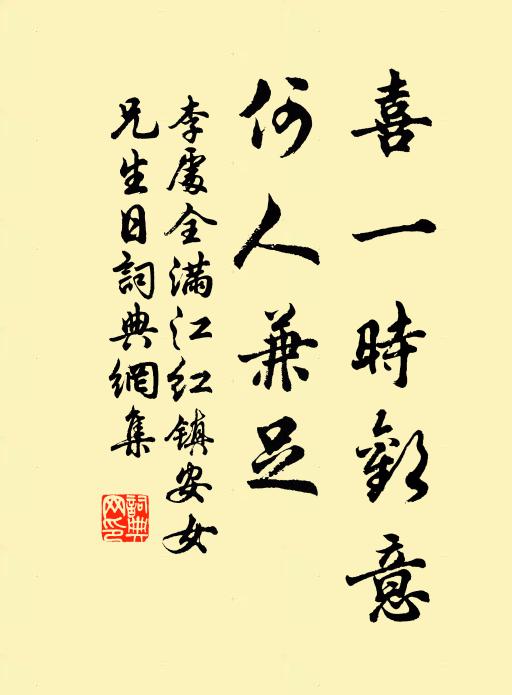 喜一時歡意
何人兼足
李處全滿江紅鎮安女
兄生日詞典網集
詞典网印